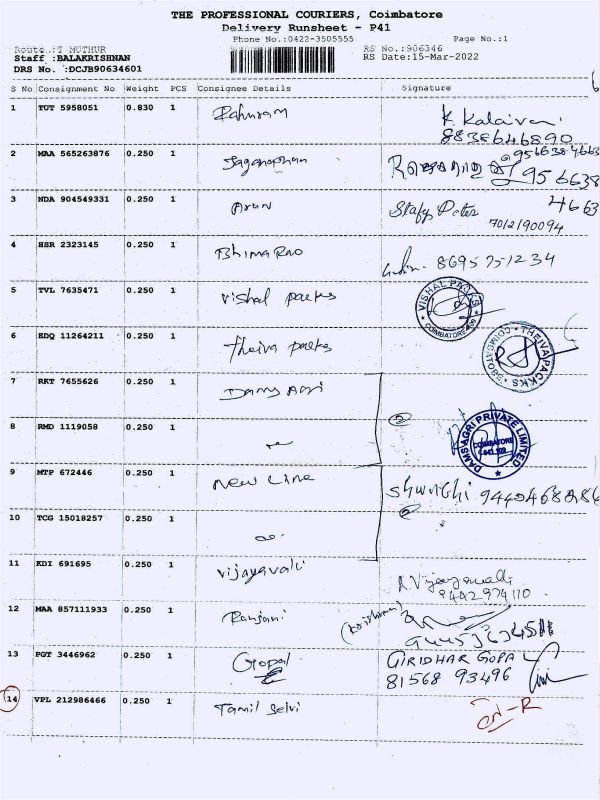 THE PROFESSIONAL COURIERS, Coimbatore
Delivery Runsheet - P41
Phone No.:0422-3505555 Page No.:1
Route :T MUTHUR RS No.:906346
Staff :BALAKRISHNAN RS Date:15-Mar-2022
DRS No. :DCJB90634601
S No Consignment No Weight PCS Consignee Details Signature
1 TUT 5958051 0.830 1 K. Kalaivani
8838646890
2 MAA 565263876 0.250 1 Jaganathan 9566384663
956638
4663
3 NDA 904549331 0.250 1 Arun Stafy Peter
4 HSR 2323145 0.250 1 Bhima Rao 8695751234
5 TVL 7635471 0.250 1 Vishal packs VISHAL PACKS
COIMBATORE
6 EDQ 11264211 0.250 1 Theiva packs THEIVA PACKKS
COIMBATORE
7 RKT 7655626 0.250 1 Dams Agri
8 RMD 1119058 0.250 1 ② DAMS AGRI PRIVATE LIMITED
COIMBATORE
9 MTP 672446 0.250 1 New Line
②
10 TCG 15018257 0.250 1
11 KDI 691695 0.250 1 Vijayavalli R Vijayavalli
9442974110
12 MAA 857111933 0.250 1 Ranjani (Krishnan)
13 PGT 3446962 0.250 1 Gopal GIRIDHAR GOPAL
81568 93496
14 VPL 212986466 0.250 1 Tamil Selvi